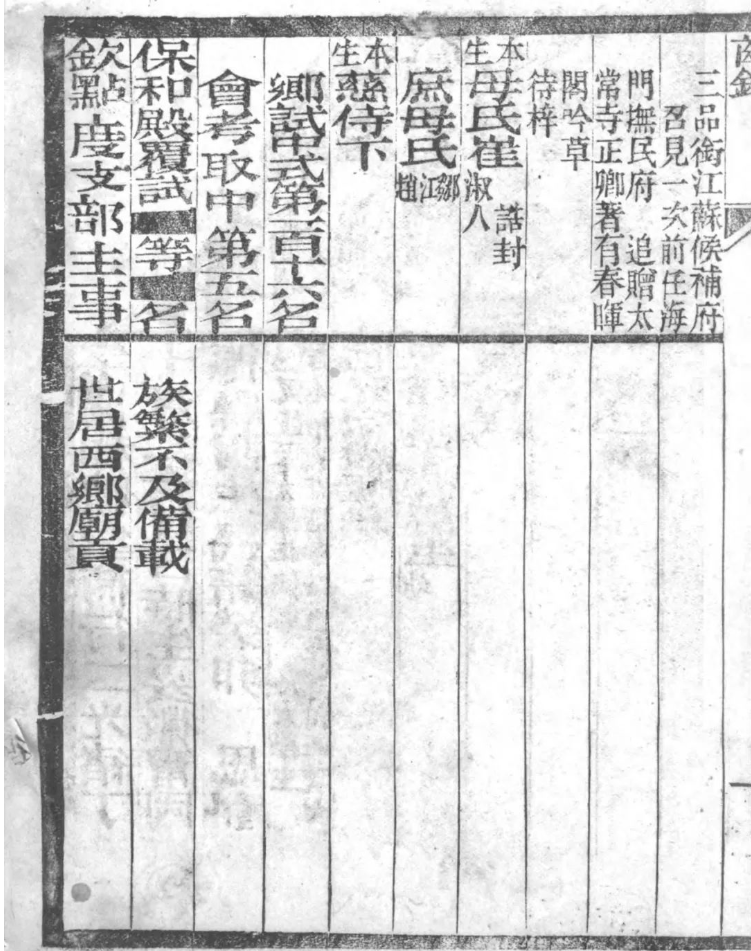 三品銜江蘇候補府
召見一次前任海
門撫民府 追贈太
常寺正卿著有春暉
閣吟草
待梓
本生母氏崔 誥封淑人
庶母氏鄒江趙
本生慈侍下
鄉試中式第一百十六名
會考取中第五名
保和殿覆試 等 名
欽點度支部主事
族繁不及備載
世居西鄉廟頁